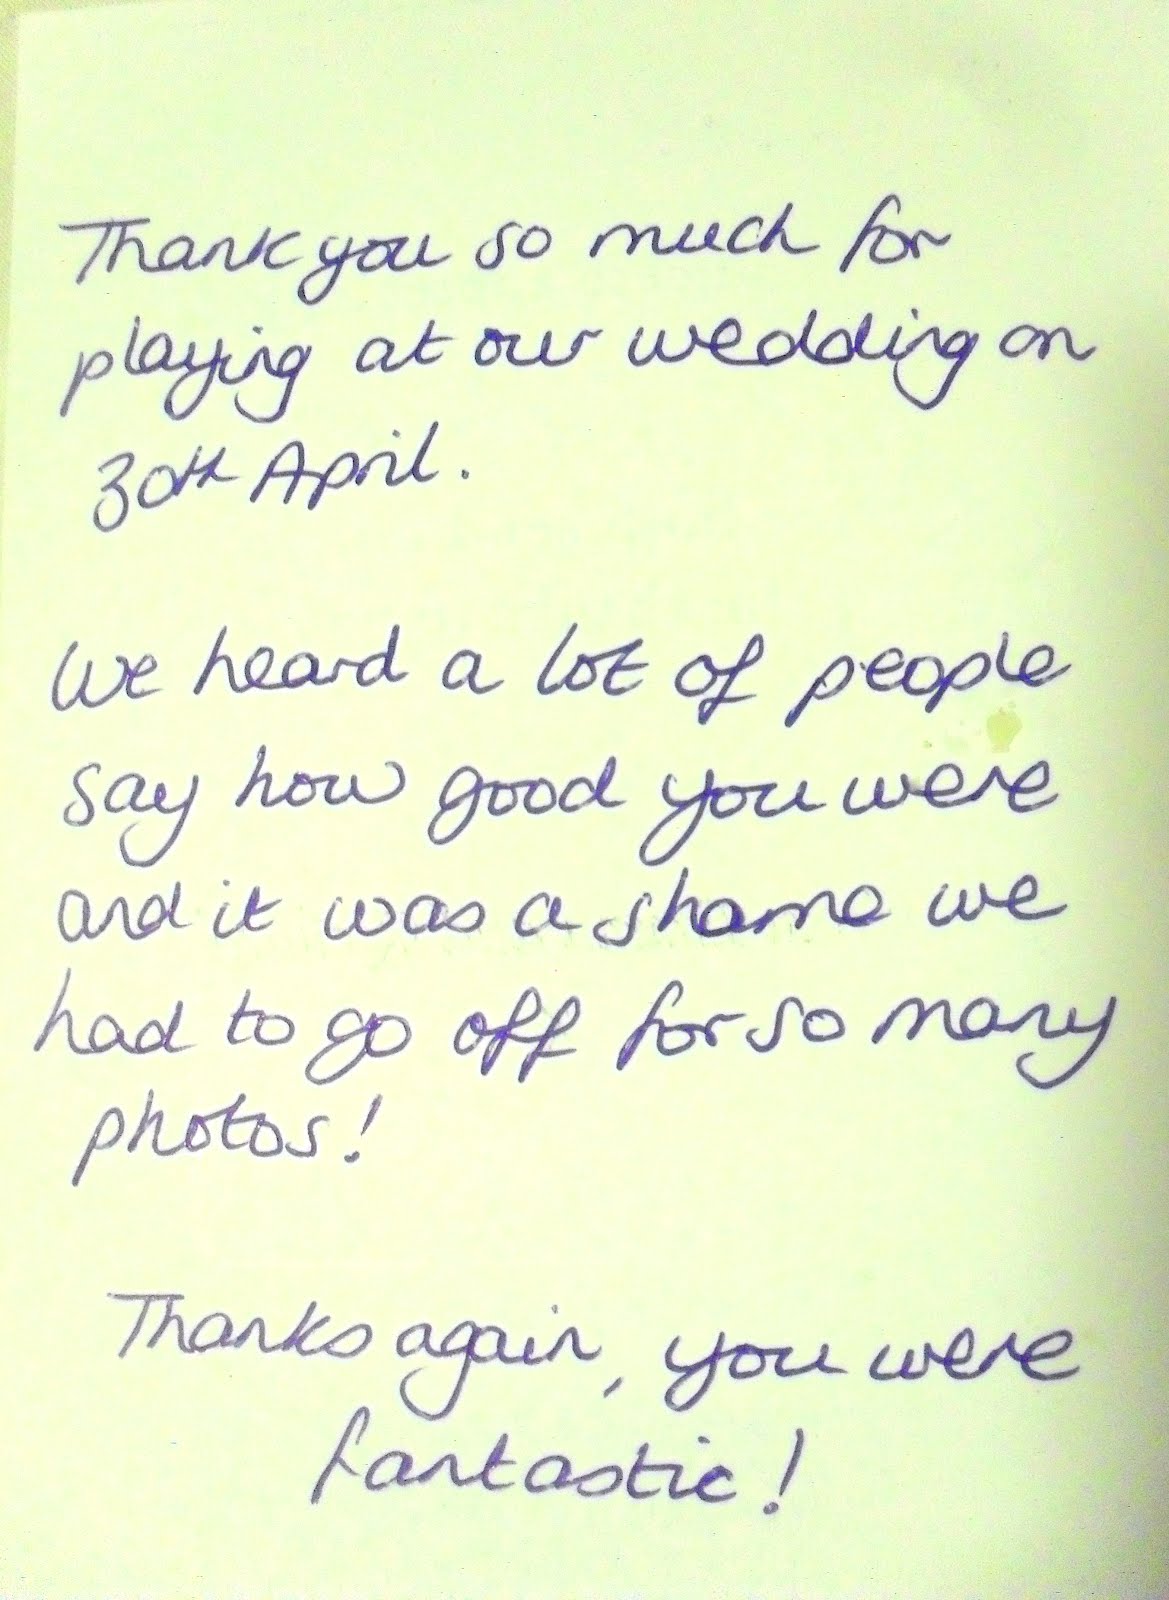 Thank you so much for
playing at our wedding on
30th April.
We heard a lot of people
say how good you were
and it was a shame we
had to go off for so many
photos!
Thanks again, you were
fantastic!